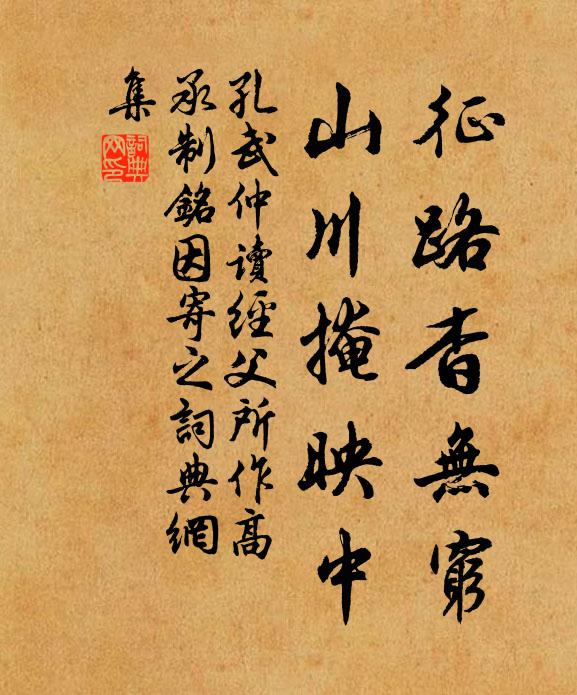 征路杳無窮
山川掩映中
孔武仲讀經父所作高
承制銘因寄之詞典網
集
詞典網印